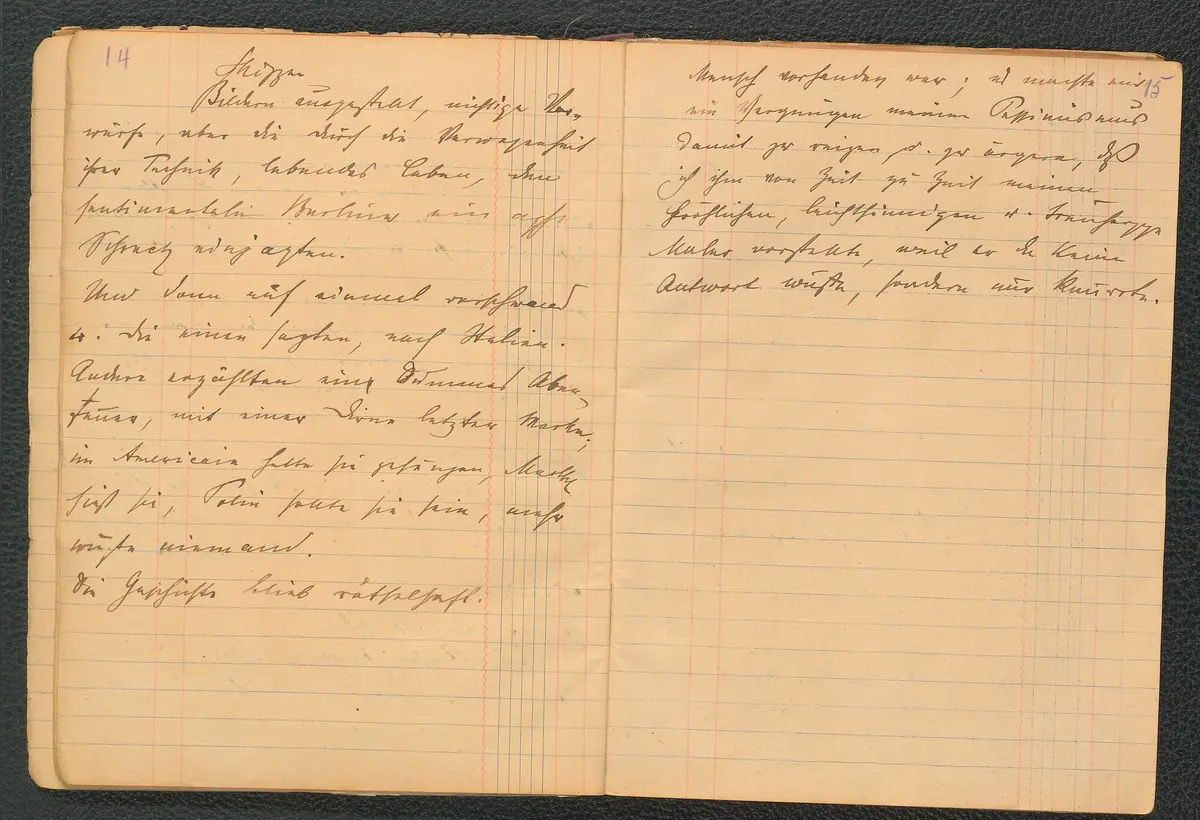 14
Skizzen
Bildern ausgestellt, nichtige Vor-
würfe, aber die durch die Verwegenheit
ihrer Technik, lebendes Leben, den
sentimentalen Berliner ein
Schreck einjagten.
Und dann auf einmal verschwand
er. Die einen sagten, nach Italien.
Andere erzählten ein dummes Aben-
teuer, mit einer Dirne letzter Marke;
im Americain hatte sie gesungen,
hieß sie, Polin sollte sie sein, mehr
wußte niemand.
Die Geschichte blieb rätselhaft.
15
Mensch vorhanden war; es machte mir
ein Vergnügen meinen Pessimismus
damit zu reizen u. zu ärgern, daß
ich ihm von Zeit zu Zeit meinen
fröhlichen, leichtsinnigen u.
Maler vorstellte, weil er da keine
Antwort wußte, sondern nur knurrte.